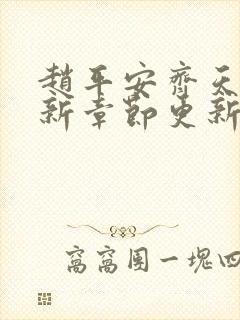 趙平安齊天
新章節更新
窩窩團一塊四